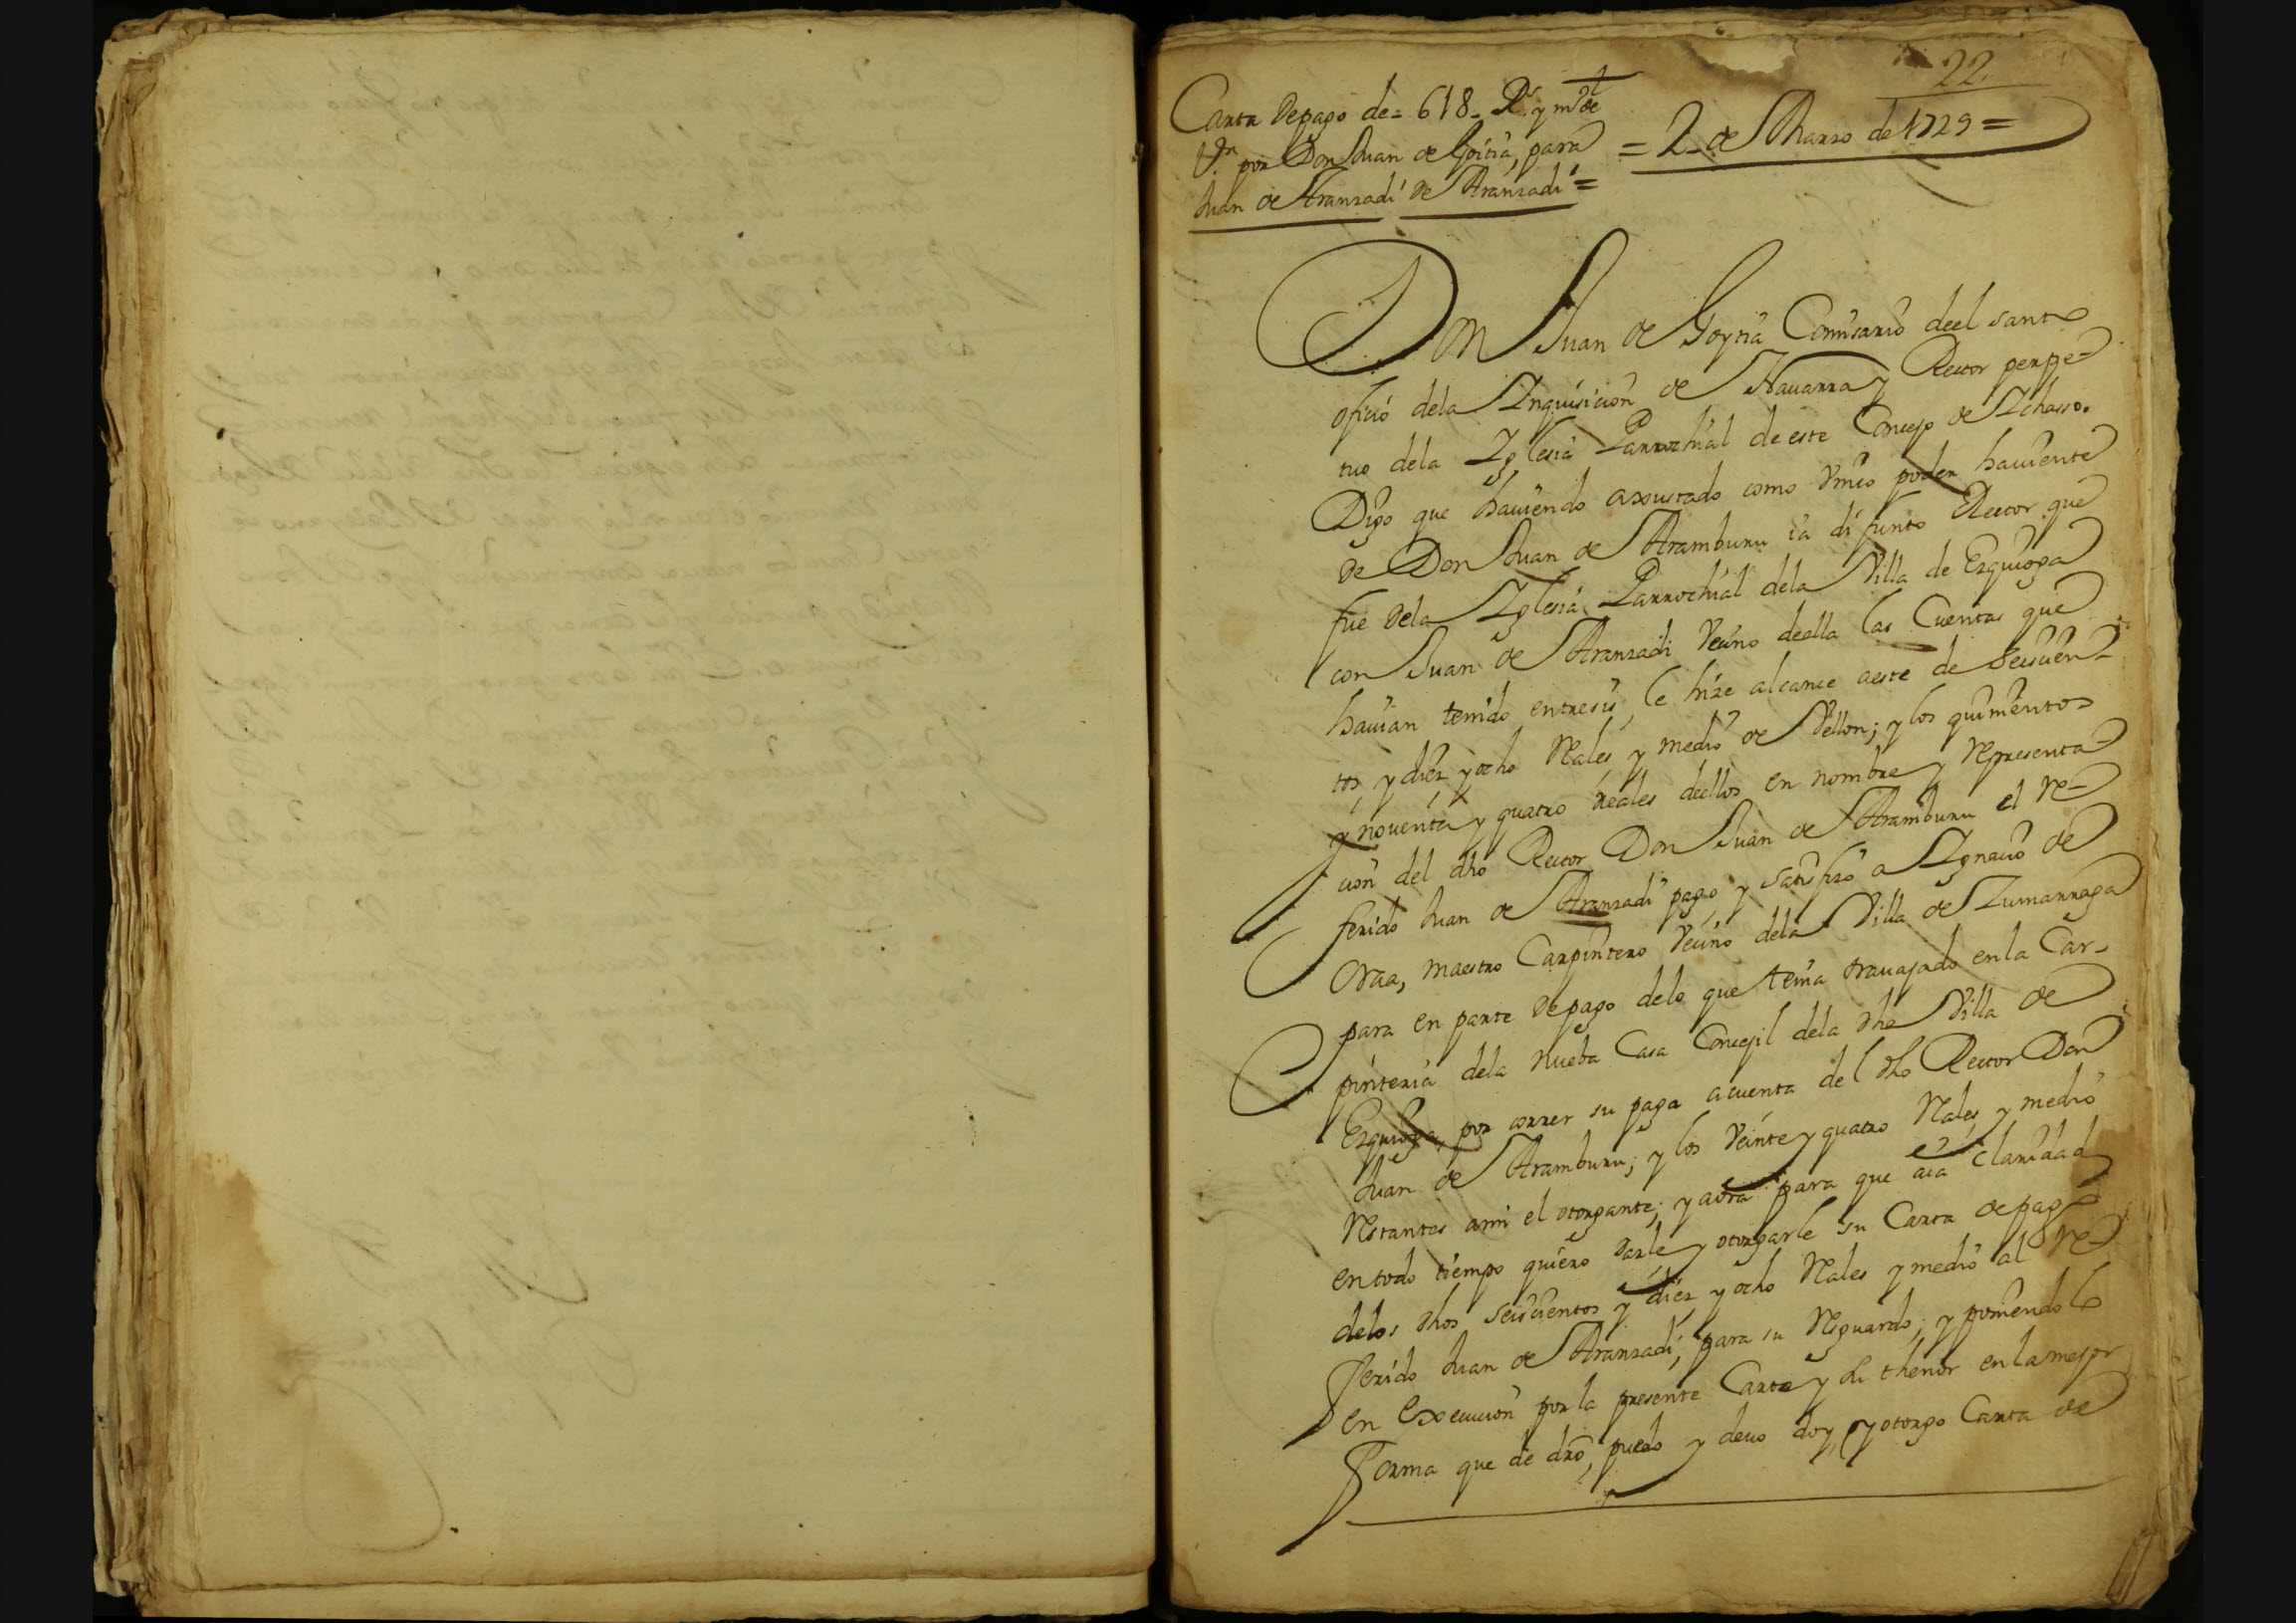 22
Carta de pago de = 618 - Rs y mº de
Vn por Don Juan de Goitia, para
Juan de Aranzadi de Aranzadi =
= 2 de Marzo de 1729 =
Don Juan de Goytia Comisario deel santo
oficio dela Inquisicion de Navarra y Rector perpe-
tuo dela Iglesia Parrochial de este Concejo de Ichasso.
Digo que haviendo axustado como Vnico poder haviente
de Don Juan de Aramburu ia difunto Rector que
fue dela Iglesia Parrochial dela Villa de Ezquioga
con Juan de Aranzadi Vecino deella las Cuentas que
havian tenido entresi, le hize alcance aeste de Seiscien-
tos, y diez y ocho Rales y medio de Vellon; y los quinientos
y noventa y quatro reales dellos en nombre y representa-
cion del dho Rector Don Juan de Aramburu el re-
ferido Juan de Aranzadi pago y satisfizo a Ignacio de
Oraa, maestro Carpintero Vecino dela Villa de Zumarraga
para en parte de pago delo que tenia travajado en la Car-
pinteria dela nueba Casa Concejil dela dha Villa de
Ezquioga, por correr su paga acuenta del dho Rector Don
Juan de Aramburu; y los Veinte y quatro Rales y medio
Restantes ami el otorgante; y aora para que aia claridad
en todo tiempo quiero darle y otorgarle su Carta de pago
delos dhos Seiscientos y diez y ocho Rales y medio al Re-
ferido Juan de Aranzadi, para su Resguardo; y poniendolo
en execucion por la presente Carta y su thenor en la mejor
Forma que de dro, puedo y devo doy, y otorgo Carta de